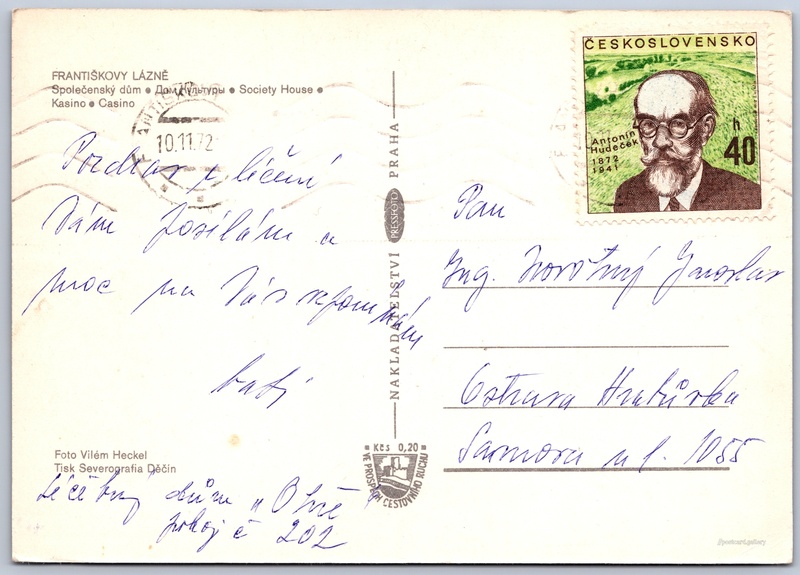 FRANTIŠKOVY LÁZNĚ
Společenský dům ● Дом культуры ● Society House ●
Kasino ● Casino
10.11.72
Pozdrav z léčení
Vám posílám a
moc na Vás vzpomínám
Foto Vilém Heckel
Tisk Severografia Děčín
Léčebný dům
pokoj č 202
NAKLADATELSTVÍ PRESSFOTO PRAHA
Kčs 0,20
VE PROSPĚCH CESTOVNÍHO RUCHU
ČESKOSLOVENSKO
Antonín
Hudeček
1872
1941
h
40
Pan
Ing. Novotný Jaroslav
Ostrava Hrabůvka
Samova ul. 1055